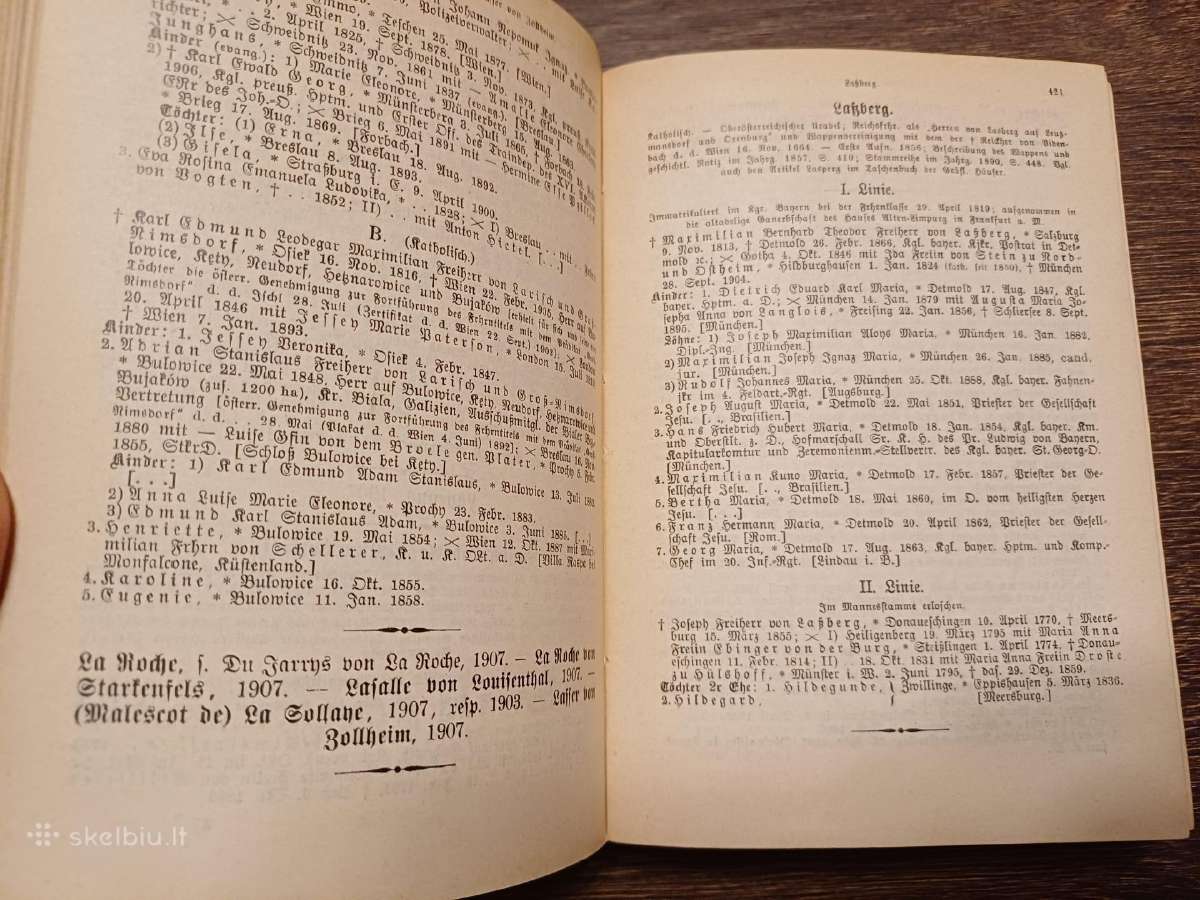 Johann Nepomuk Ignaz
Polizeiverwalter;
* Teschen 25. Mai 1877. [Wien.]
* Wien 19. Sept. 1878. [Wien.]
richter; * . . 2. April 1825, † Schweidnitz 3. Nov. 1873, Kgl. preuß.
Junghans, * Schweidnitz 23. Nov. 1861 mit — Amalie
Kinder (evang.): 1) Marie Eleonore, * Münsterberg 3. Juli 1863
2) † Karl Ewald Georg, * Münsterberg 16. Aug. 1865, † Forbach
1906, Kgl. preuß. Hptm. und Erster Offz. des Traindep. des XVI.
ERr des Joh.-O.; ⚔ Brieg 6. Mai 1891 mit — Hermine Else
* Brieg 17. Aug. 1869. [Forbach.]
Töchter: (1) Erna, * Breslau 18. Aug. 1892.
(2) Ilse, * Breslau 8. Aug. 1893.
(3) Gisela, * Straßburg i. E. 9. April 1900.
3. Eva Rosina Emanuela Ludovika, * . . 1828; ⚔ I) Breslau . . mit . .
von Vogten, † . . 1852; II) . . mit Anton Hietel. [. . .]
B. (Katholisch.)
† Karl Edmund Leodegar Maximilian Freiherr von Larisch und Groß-
Nimsdorf, * Osiek 16. Nov. 1816, † Wien 22. Febr. 1905, Herr auf Bu-
lowice, Kety, Neudorf, Heznarowice und Bujaków (erhielt für sich und
Töchter die österr. Genehmigung zur Fortführung des Frhrntitels mit dem
Nimsdorf“ d. d. Ischl 28. Juli (Zertifikat d. d. Wien 22. Sept.) 1902); ⚔ London
20. April 1846 mit Jessey Marie Paterson, * London 15. Juli
† Wien 7. Jan. 1893.
Kinder: 1. Jessey Veronika, * Osiek 4. Febr. 1847.
2. Adrian Stanislaus Freiherr von Larisch und Groß-Nimsdorf,
* Bulowice 22. Mai 1848, Herr auf Bulowice, Kety, Neudorf, Heznarowice und
Bujaków (zus. 1200 ha), Kr. Biala, Galizien, Ausschußmitgl. der Bialer
Vertretung [österr. Genehmigung zur Fortführung des Frhrntitels mit dem Prädikat
Nimsdorf“ d. d. . . 28. Mai (Plakat d. d. Wien 4. Juni) 1892]; ⚔ Breslau 16. Nov.
1880 mit — Luise Gfin von dem Broele gen. Plater, * Prochy 5. Febr.
1855, StkrD. [Schloß Bulowice bei Kety.]
Kinder: 1) Karl Edmund Adam Stanislaus, * Bulowice 13. Juli 1881.
[. . .]
2) Anna Luise Marie Eleonore, * Prochy 23. Febr. 1883.
3) Edmund Karl Stanislaus Adam, * Bulowice 3. Juni 1885. [. . .]
3. Henriette, * Bulowice 19. Mai 1854; ⚔ Wien 12. Okt. 1887 mit Maxi-
milian Frhrn von Schellerer, K. u. K. Okt. a. D. [Villa Raspe bei
Monfalcone, Küstenland.]
4. Karoline, * Bulowice 16. Okt. 1855.
5. Eugenie, * Bulowice 11. Jan. 1858.
La Roche, s. Du Jarrys von La Roche, 1907. — La Roche von
Starkenfels, 1907. — Lasalle von Louisenthal, 1907. —
(Malescot de) La Sollaye, 1907, resp. 1903. — Lasser von
Zollheim, 1907.
Laßberg. 421
Laßberg.
Katholisch. — Oberösterreichischer Uradel; Reichsfrhr. als „Herren von Laßberg auf Leuz-
mansdorf und Orenburg“ und Wappenvereinigung mit dem der † Reichsfrhr von Viden-
bach d. d. Wien 16. Nov. 1664. — Erste Aufn. 1856; Beschreibung des Wappens und
geschichtl. Notiz im Jahrg. 1857, S. 410; Stammreihe im Jahrg. 1890, S. 448. Vgl.
auch den Artikel Lasperg im Taschenbuch der Gräfl. Häuser.
I. Linie.
Immatrikuliert im Kgr. Bayern bei der Frhrnklasse 29. April 1819; aufgenommen in
die altadelige Ganerbschaft des Hauses Alten-Limpurg in Frankfurt a. M.
† Maximilian Bernhard Theodor Freiherr von Laßberg, * Salzburg
9. Nov. 1813, † Detmold 26. Febr. 1866, Kgl. bayer. Kjkr, Postrat in Det-
mold rc.; ⚔ Gotha 4. Okt. 1846 mit Ida Freiin von Stein zu Nord-
und Ostheim, * Hildburghausen 1. Jan. 1824 (kath. seit 1850), † München
28. Sept. 1904.
Kinder: 1. Dietrich Eduard Karl Maria, * Detmold 17. Aug. 1847, Kgl.
bayer. Hptm. a. D.; ⚔ München 14. Jan. 1879 mit Augusta Maria Jo-
sepha Anna von Langlois, * Freising 22. Jan. 1856, † Schliersee 8. Sept.
1895. [München.]
Söhne: 1) Joseph Maximilian Aloys Maria, * München 16. Jan. 1882,
Dipl.-Ing. [München.]
2) Maximilian Joseph Ignaz Maria, * München 26. Jan. 1885, cand.
jur. [München.]
3) Rudolf Johannes Maria, * München 25. Okt. 1888, Kgl. bayer. Fahnen-
jkr im 4. Feldart.-Rgt. [Augsburg.]
2. Joseph August Maria, * Detmold 22. Mai 1851, Priester der Gesellschaft
Jesu. [. ., Brasilien.]
3. Hans Friedrich Hubert Maria, * Detmold 18. Jan. 1854, Kgl. bayer. Km.
und Oberstlt. z. D., Hofmarschall Sr. K. H. des Pr. Ludwig von Bayern,
Kapitularkomtur und Zeremonienm.-Stellvertr. des Kgl. bayer. St. Georg-O.
[München.]
4. Maximilian Kuno Maria, * Detmold 17. Febr. 1857, Priester der Ge-
sellschaft Jesu. [. ., Brasilien.]
5. Bertha Maria, * Detmold 18. Mai 1860, im O. vom heiligsten Herzen
Jesu. [. . .]
6. Franz Hermann Maria, * Detmold 20. April 1862, Priester der Gesell-
schaft Jesu. [Rom.]
7. Georg Maria, * Detmold 17. Aug. 1863, Kgl. bayer. Hptm. und Komp.-
Chef im 20. Inf.-Rgt. [Lindau i. B.]
II. Linie.
Im Mannesstamme erloschen.
† Joseph Freiherr von Laßberg, * Donaueschingen 10. April 1770, † Meers-
burg 15. März 1855; ⚔ I) Heiligenberg 19. März 1795 mit Maria Anna
Freiin Ebinger von der Burg, * Steißlingen 1. April 1774, † Donau-
eschingen 11. Febr. 1814; II) . . 18. Okt. 1831 mit Maria Anna Freiin Droste
zu Hülshoff, * Münster i. W. 2. Juni 1795, † das. 29. Dez. 1859.
Töchter 2r Ehe: 1. Hildegunde, } Zwillinge, * Eppishausen 5. März 1836.
2. Hildegard, } [Meersburg.]
skelbiu.lt